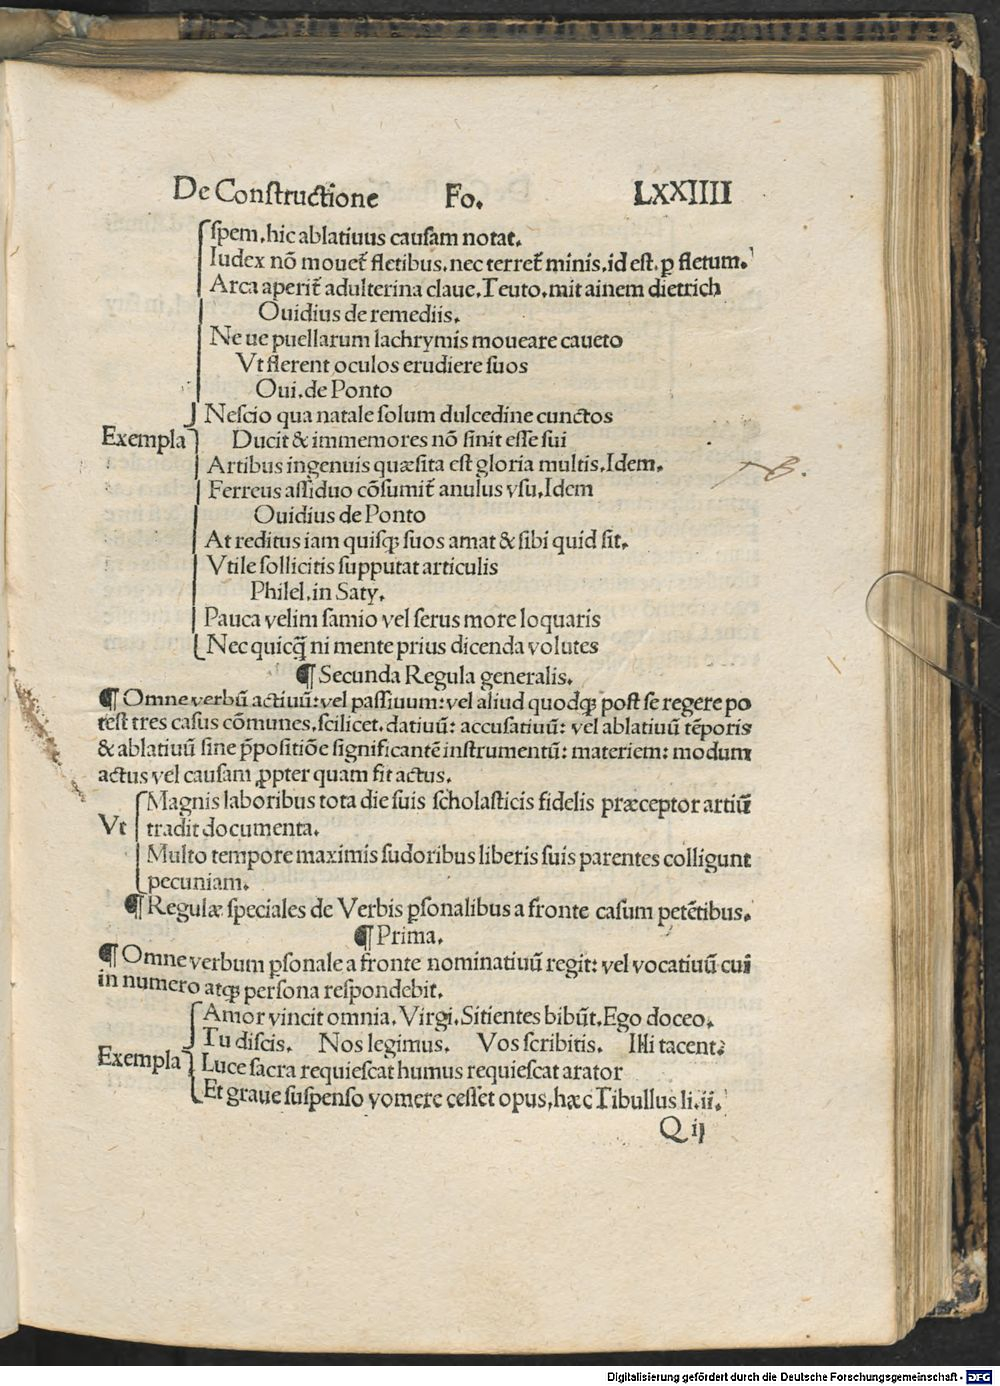 De Constructione Fo. LXXIIII
spem, hic ablatiuus causam notat.
Iudex nō mouet᷑ fletibus, nec terret᷑ minis, id est, ꝑ fletum.
Arca aperit᷑ adulterina claue, Teuto, mit ainem dietrich
Ouidius de remediis.
Ne ue puellarum lachrymis moueare caueto
Vt flerent oculos erudiere suos
Oui. de Ponto
Nescio qua natale solum dulcedine cunctos
Exempla Ducit & immemores nō sinit esse sui
Artibus ingenuis quæsita est gloria multis, Idem.
Ferreus assiduo cōsumit᷑ anulus vsu, Idem
Ouidius de Ponto
At reditus iam quisqꝫ suos amat & sibi quid sit.
Vtile sollicitis supputat articulis
Philel. in Saty.
Pauca velim samio vel serus more loquaris
Nec quicq̄ ni mente prius dicenda volutes
¶ Secunda Regula generalis.
¶ Omne verbū actiuū: vel passiuum: vel aliud quodqꝫ post se regere po
test tres casus cōmunes, scilicet, datiuū: accusatiuū: vel ablatiuū tēporis
& ablatiuū sine p̄positiōe significantē instrumentū: materiem: modum
actus vel causam ꝓpter quam fit actus.
Magnis laboribus tota die suis scholasticis fidelis præceptor artiū
Vt tradit documenta.
Multo tempore maximis sudoribus liberis suis parentes colligunt
pecuniam.
¶ Regulæ speciales de Verbis ꝑsonalibus a fronte casum petētibus.
¶ Prima.
¶ Omne verbum ꝑsonale a fronte nominatiuū regit: vel vocatiuū cui
in numero atqꝫ persona respondebit.
Amor vincit omnia. Virgi. Sitientes bibūt. Ego doceo.
Tu discis. Nos legimus. Vos scribitis. Illi tacent.
Exempla Luce sacra requiescat humus requiescat arator
Et graue suspenso vomere cesset opus, hæc Tibullus li. ii.
Q ij
Digitalisierung gefördert durch die Deutsche Forschungsgemeinschaft - DFG